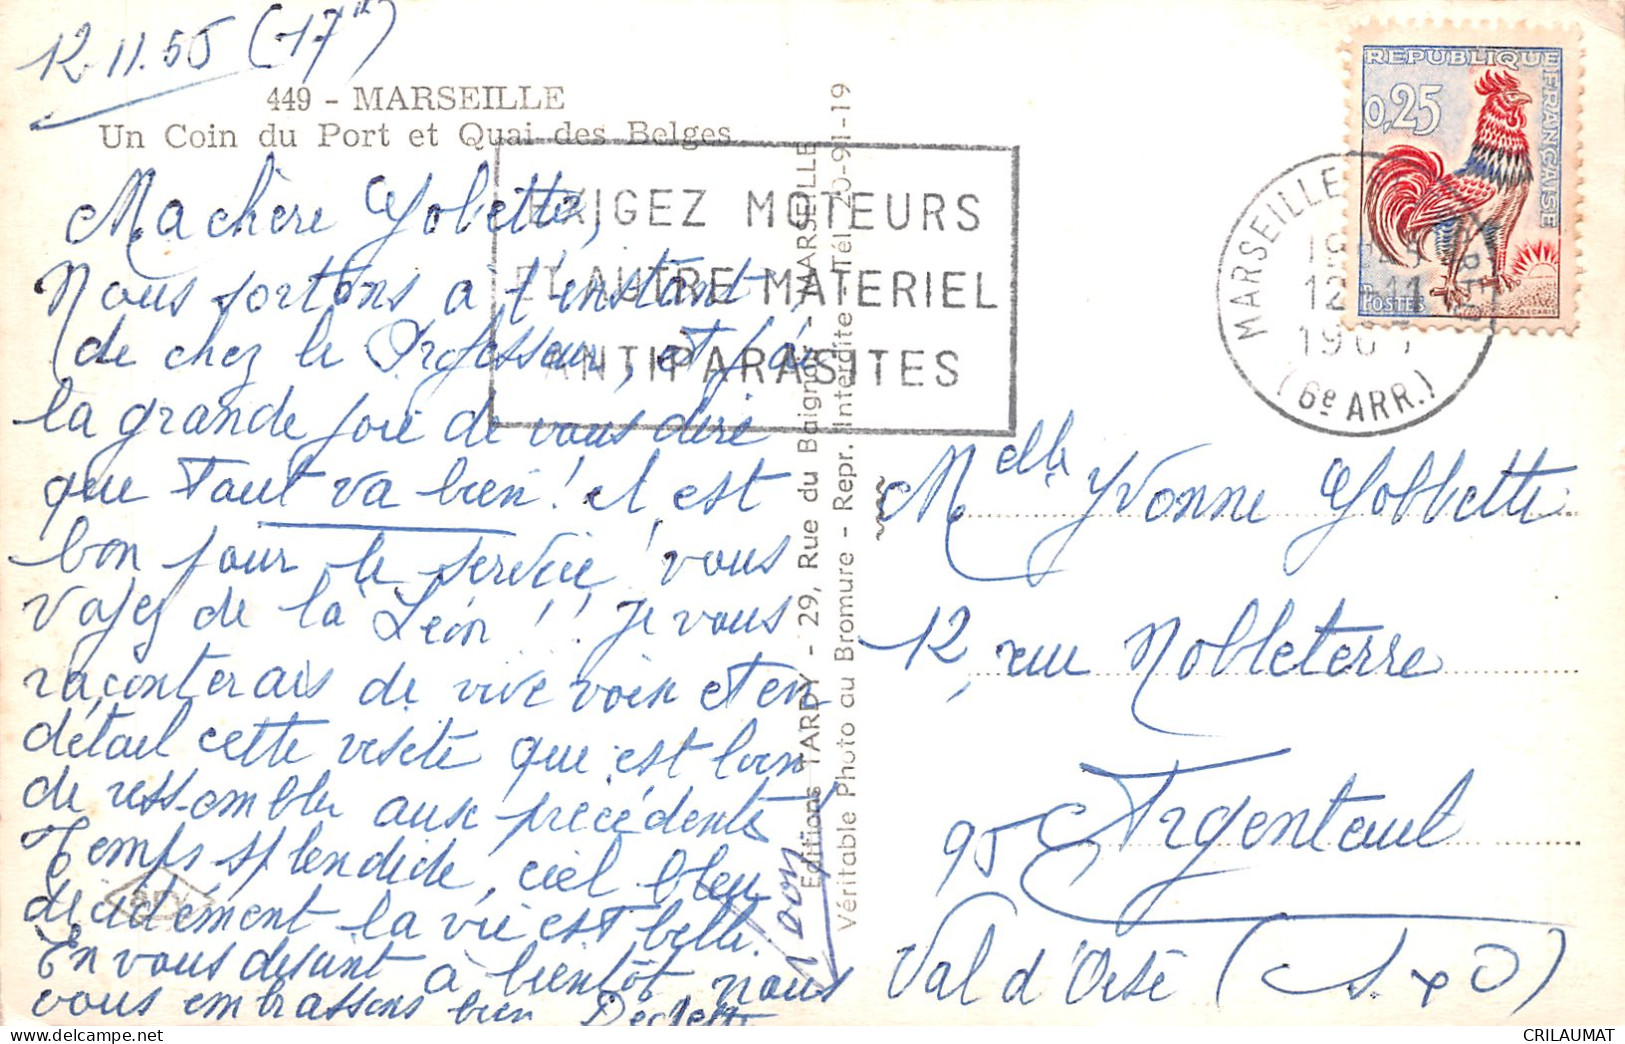 12.11.65 (17h)
449 - MARSEILLE
Un Coin du Port et Quai des Belges
Ma chère Yobette,
Nous sortons à l'instant
de chez le Professeur, et j'ai
la grande joie de vous dire
que Tout va bien ! il est
bon pour le service ! vous
voyez de là Léon !! Je vous
raconterais de vive voix et en
détail cette visite que est loin
de ressembler aux précédentes
Temps splendide, ciel bleu
décidément la vie est belle.
En vous disant à bientôt nous
vous embrassons bien
EXIGEZ MOTEURS
ET AUTRE MATERIEL
ANTIPARASITES
Editions TARDY - 29, Rue du Baignoir - MARSEILLE
Véritable Photo au Bromure - Repr. Interdite - Tél. 20-91-19
REPUBLIQUE FRANÇAISE
0,25
POSTES
DECARIS
MARSEILLE
12-11
(6e ARR.)
Melle Yvonne Yobbette
12, rue Nobleterre
95 Argenteuil
Val d'Oise (S x O)
CRILAUMAT